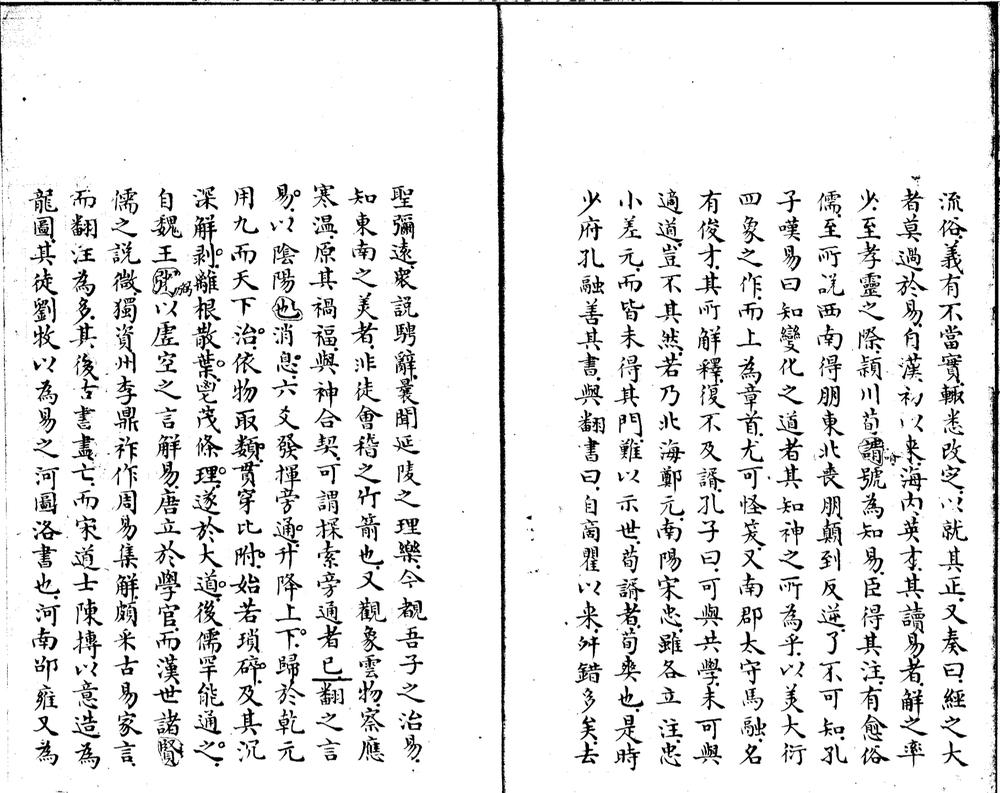 流俗義有不當實輒悉改定以就其正又奏曰經之大
者莫過於易自漢初以來海内英才其讀易者解之率
少至孝靈之際潁川荀諝號為知易臣得其注有愈俗
儒至所說西南得朋東北喪朋顛到反逆了不可知孔
子嘆易曰知變化之道者其知神之所為乎以美大衍
四象之作而上為章首尤可怪笑又南郡太守馬融名
有俊才其所解釋復不及諝孔子曰可與共學未可與
適道豈不其然若乃北海鄭元南陽宋忠雖各立注忠
小差元而皆未得其門難以示世荀諝者荀爽也是時
少府孔融善其書與翻書曰自商瞿以來舛錯多矣去
聖彌遠衆說騁辭曩聞延陵之理樂今覩吾子之治易
知東南之美者非徒會稽之竹箭也又觀象雲物察應
寒温原其禍福與神合契可謂探索旁通者已翻之言
易以陰陽也消息六爻發揮旁通升降上下歸於乾元
用九而天下治依物取類貫穿比附始若瑣碎及其沉
深解剥離根散葉鬯茂條理遂於大道後儒罕能通之
自魏王弼以虛空之言解易唐立於學官而漢世諸賢
儒之說微獨資州李鼎祚作周易集解頗采古易家言
而翻注為多其後古書盡亡而宋道士陳摶以意造為
龍圖其徒劉牧以為易之河圖洛書也河南邵雍又為